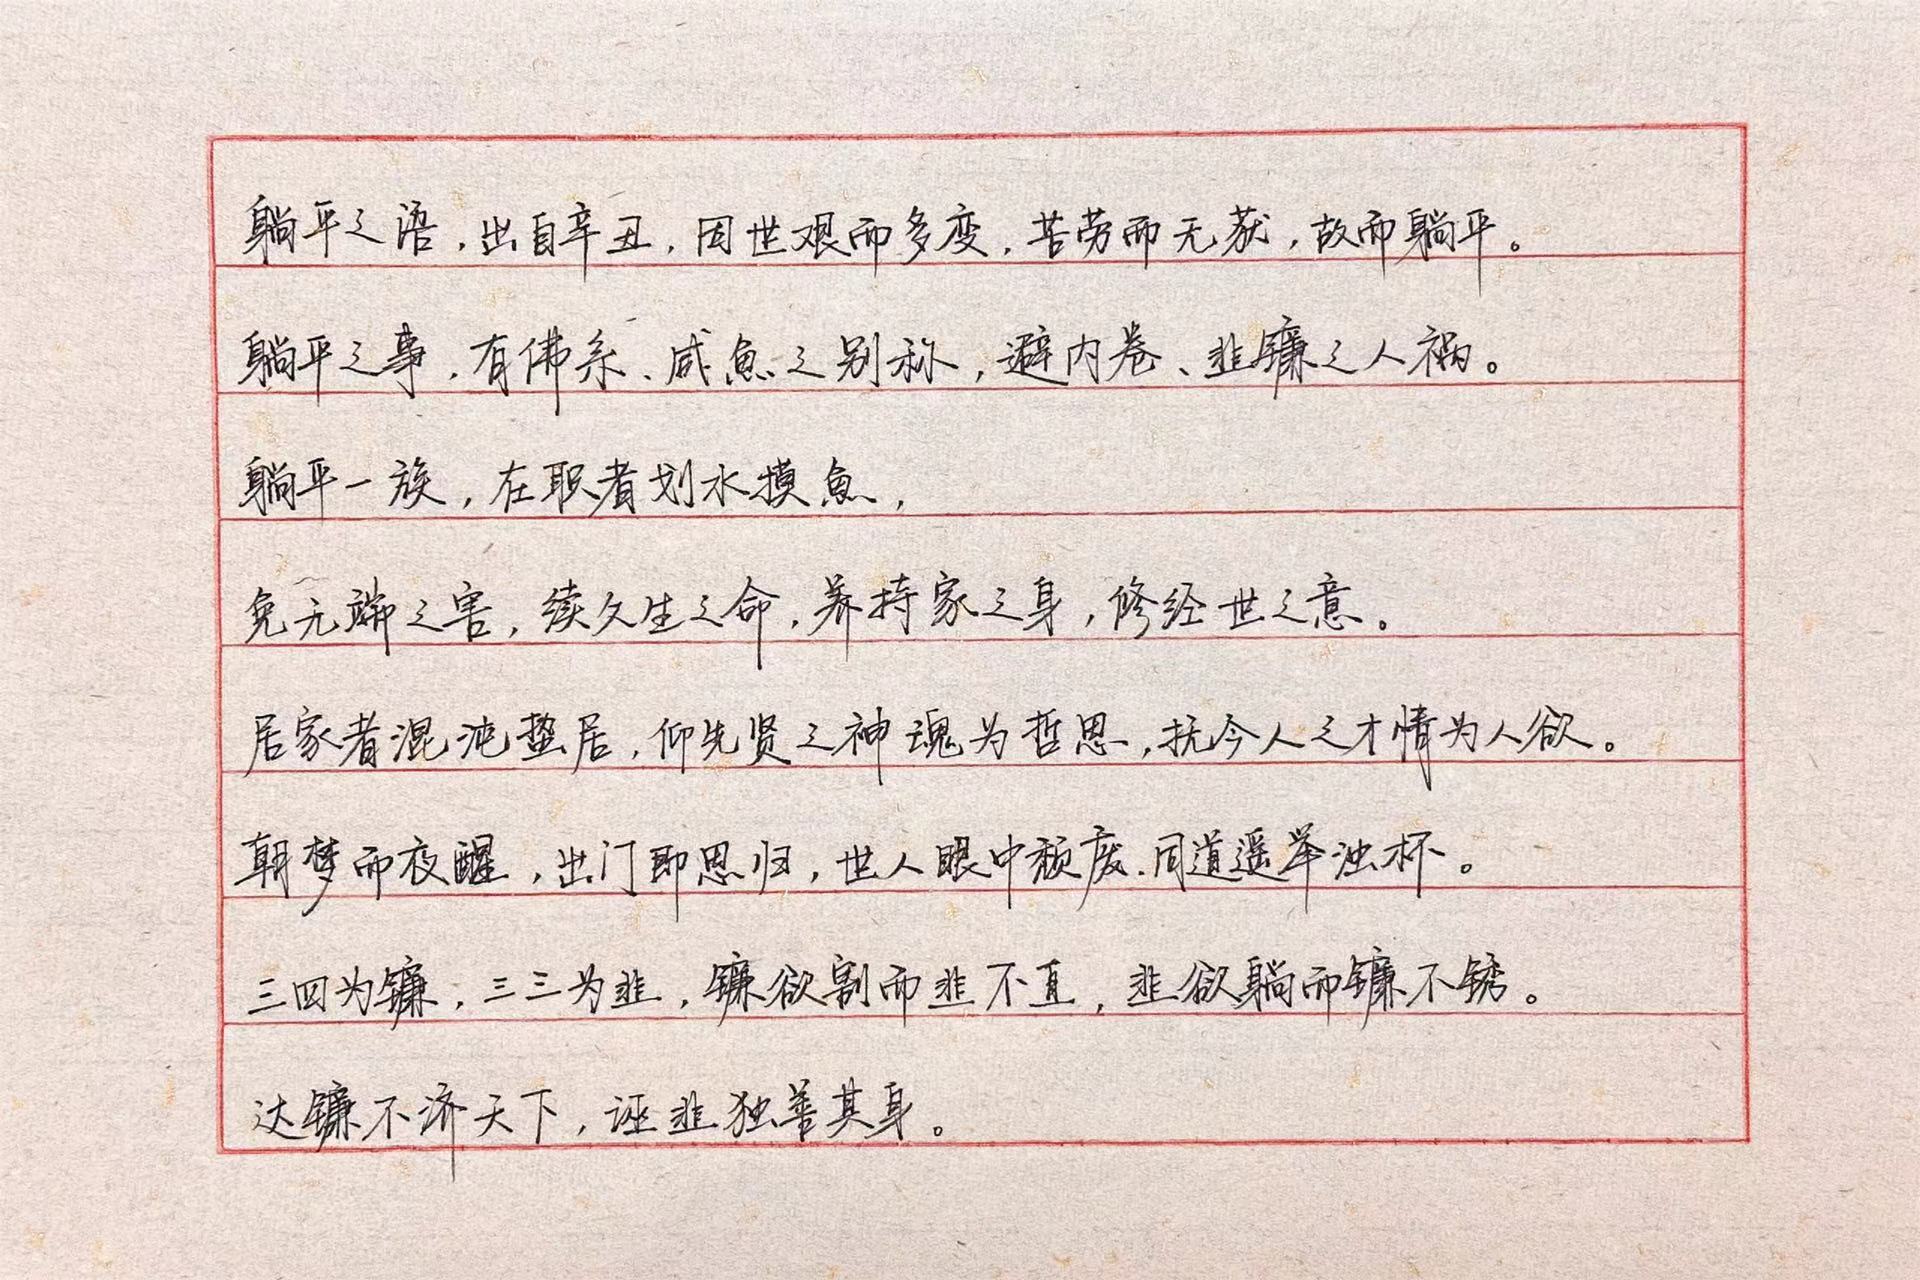 躺平之语，出自辛丑，因世艰而多变，苦劳而无获，故而躺平。
躺平之事，有佛系、咸鱼之别称，避内卷、韭镰之人祸。
躺平一族，在职者划水摸鱼，
免无端之害，续久生之命，养持家之身，修经世之意。
居家者混沌蛰居，仰先贤之神魂为哲思，抚今人之才情为人欲。
朝梦而夜醒，出门即思归，世人眼中颓废、同道遥举浊杯。
三四为镰，三三为韭，镰欲割而韭不直，韭欲躺而镰不锈。
达镰不济天下，诬韭独善其身。